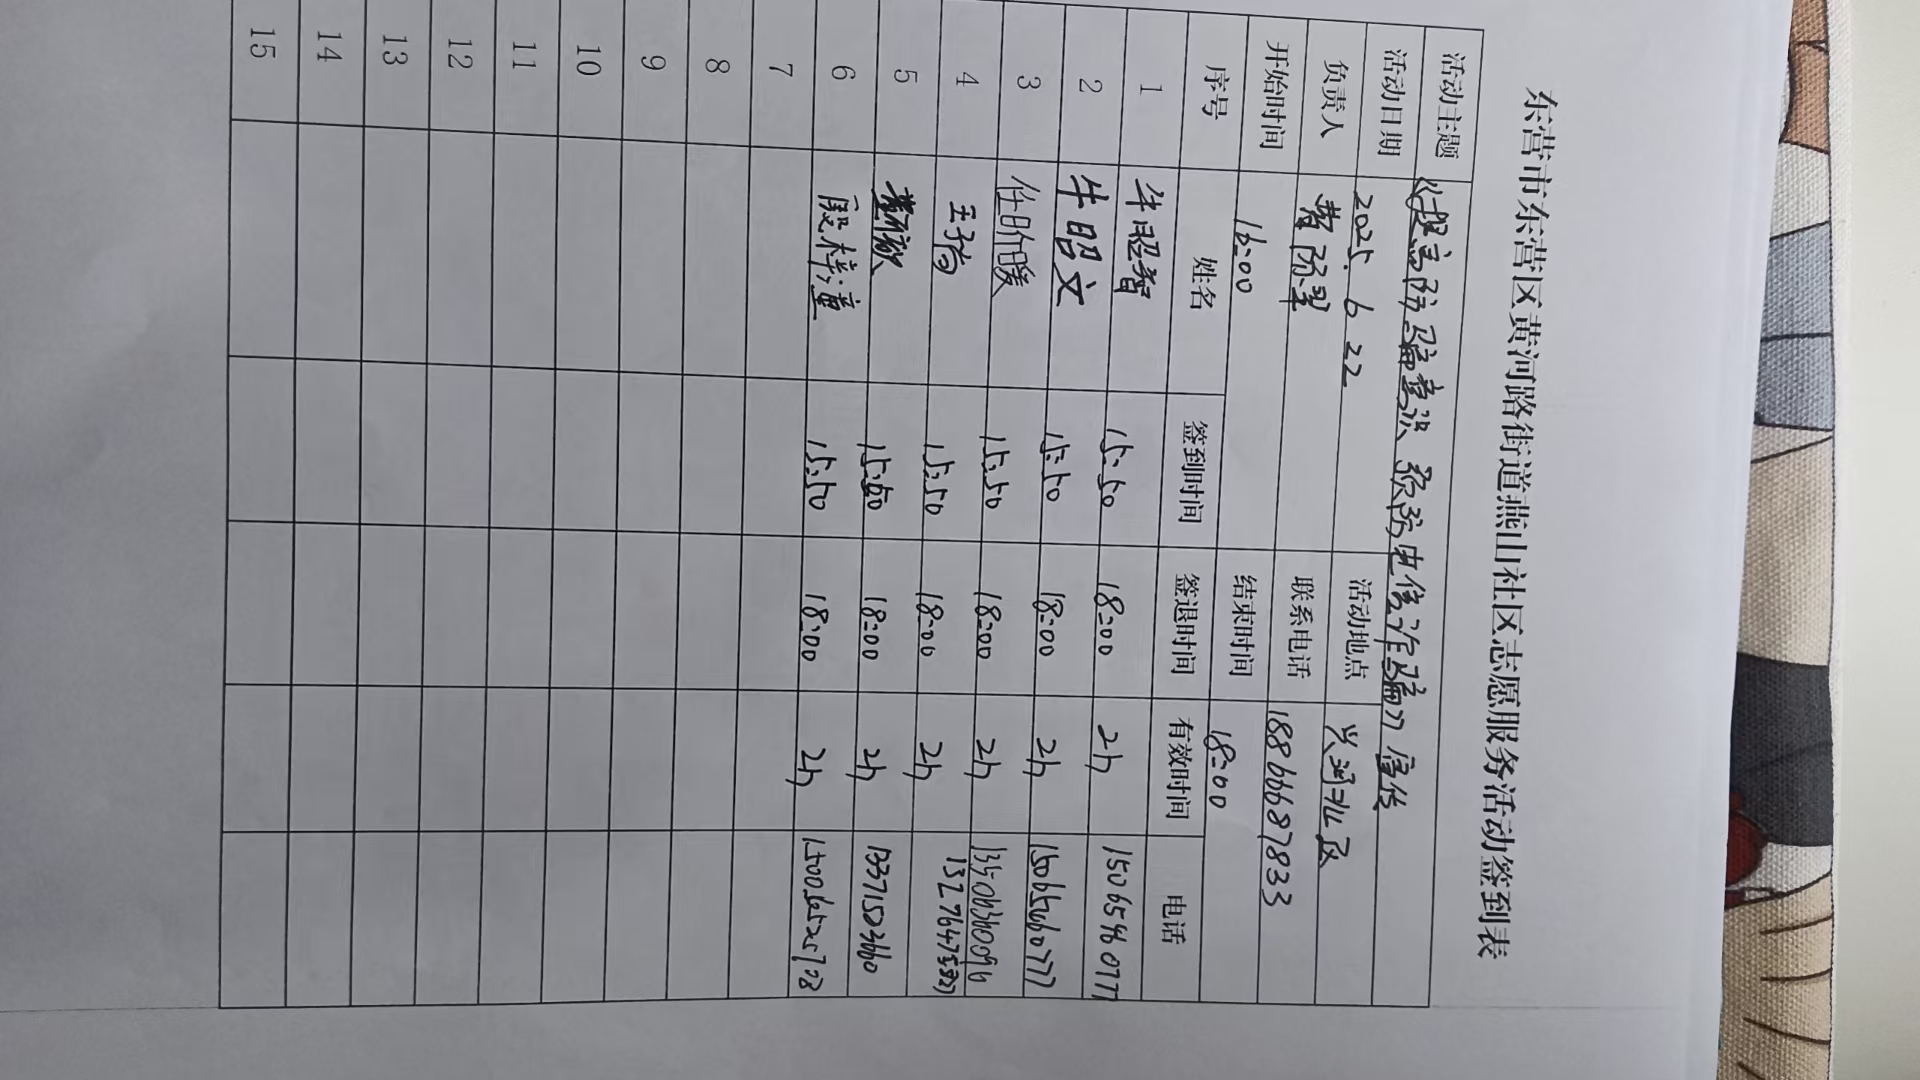 东营市东营区黄河路街道燕山社区志愿服务活动签到表
活动主题 《提高防骗意识 预防电信诈骗》宣传
活动日期 2025.6 22 活动地点 兴河北区
负责人 联系电话 18866687833
开始时间 16:00 结束时间 18:00
序号 姓名 签到时间 签退时间 有效时间 电话
1 牛昭智 15:50 18:00 2h 15065460777
2 牛昭文 15:50 18:00 2h 15065460777
3 任昕暖 15:50 18:00 2h
4 15:50 18:00 2h
5 15:50 18:00 2h 13371503660
6 殷梓潼 15:50 18:00 2h
7
8
9
10
11
12
13
14
15